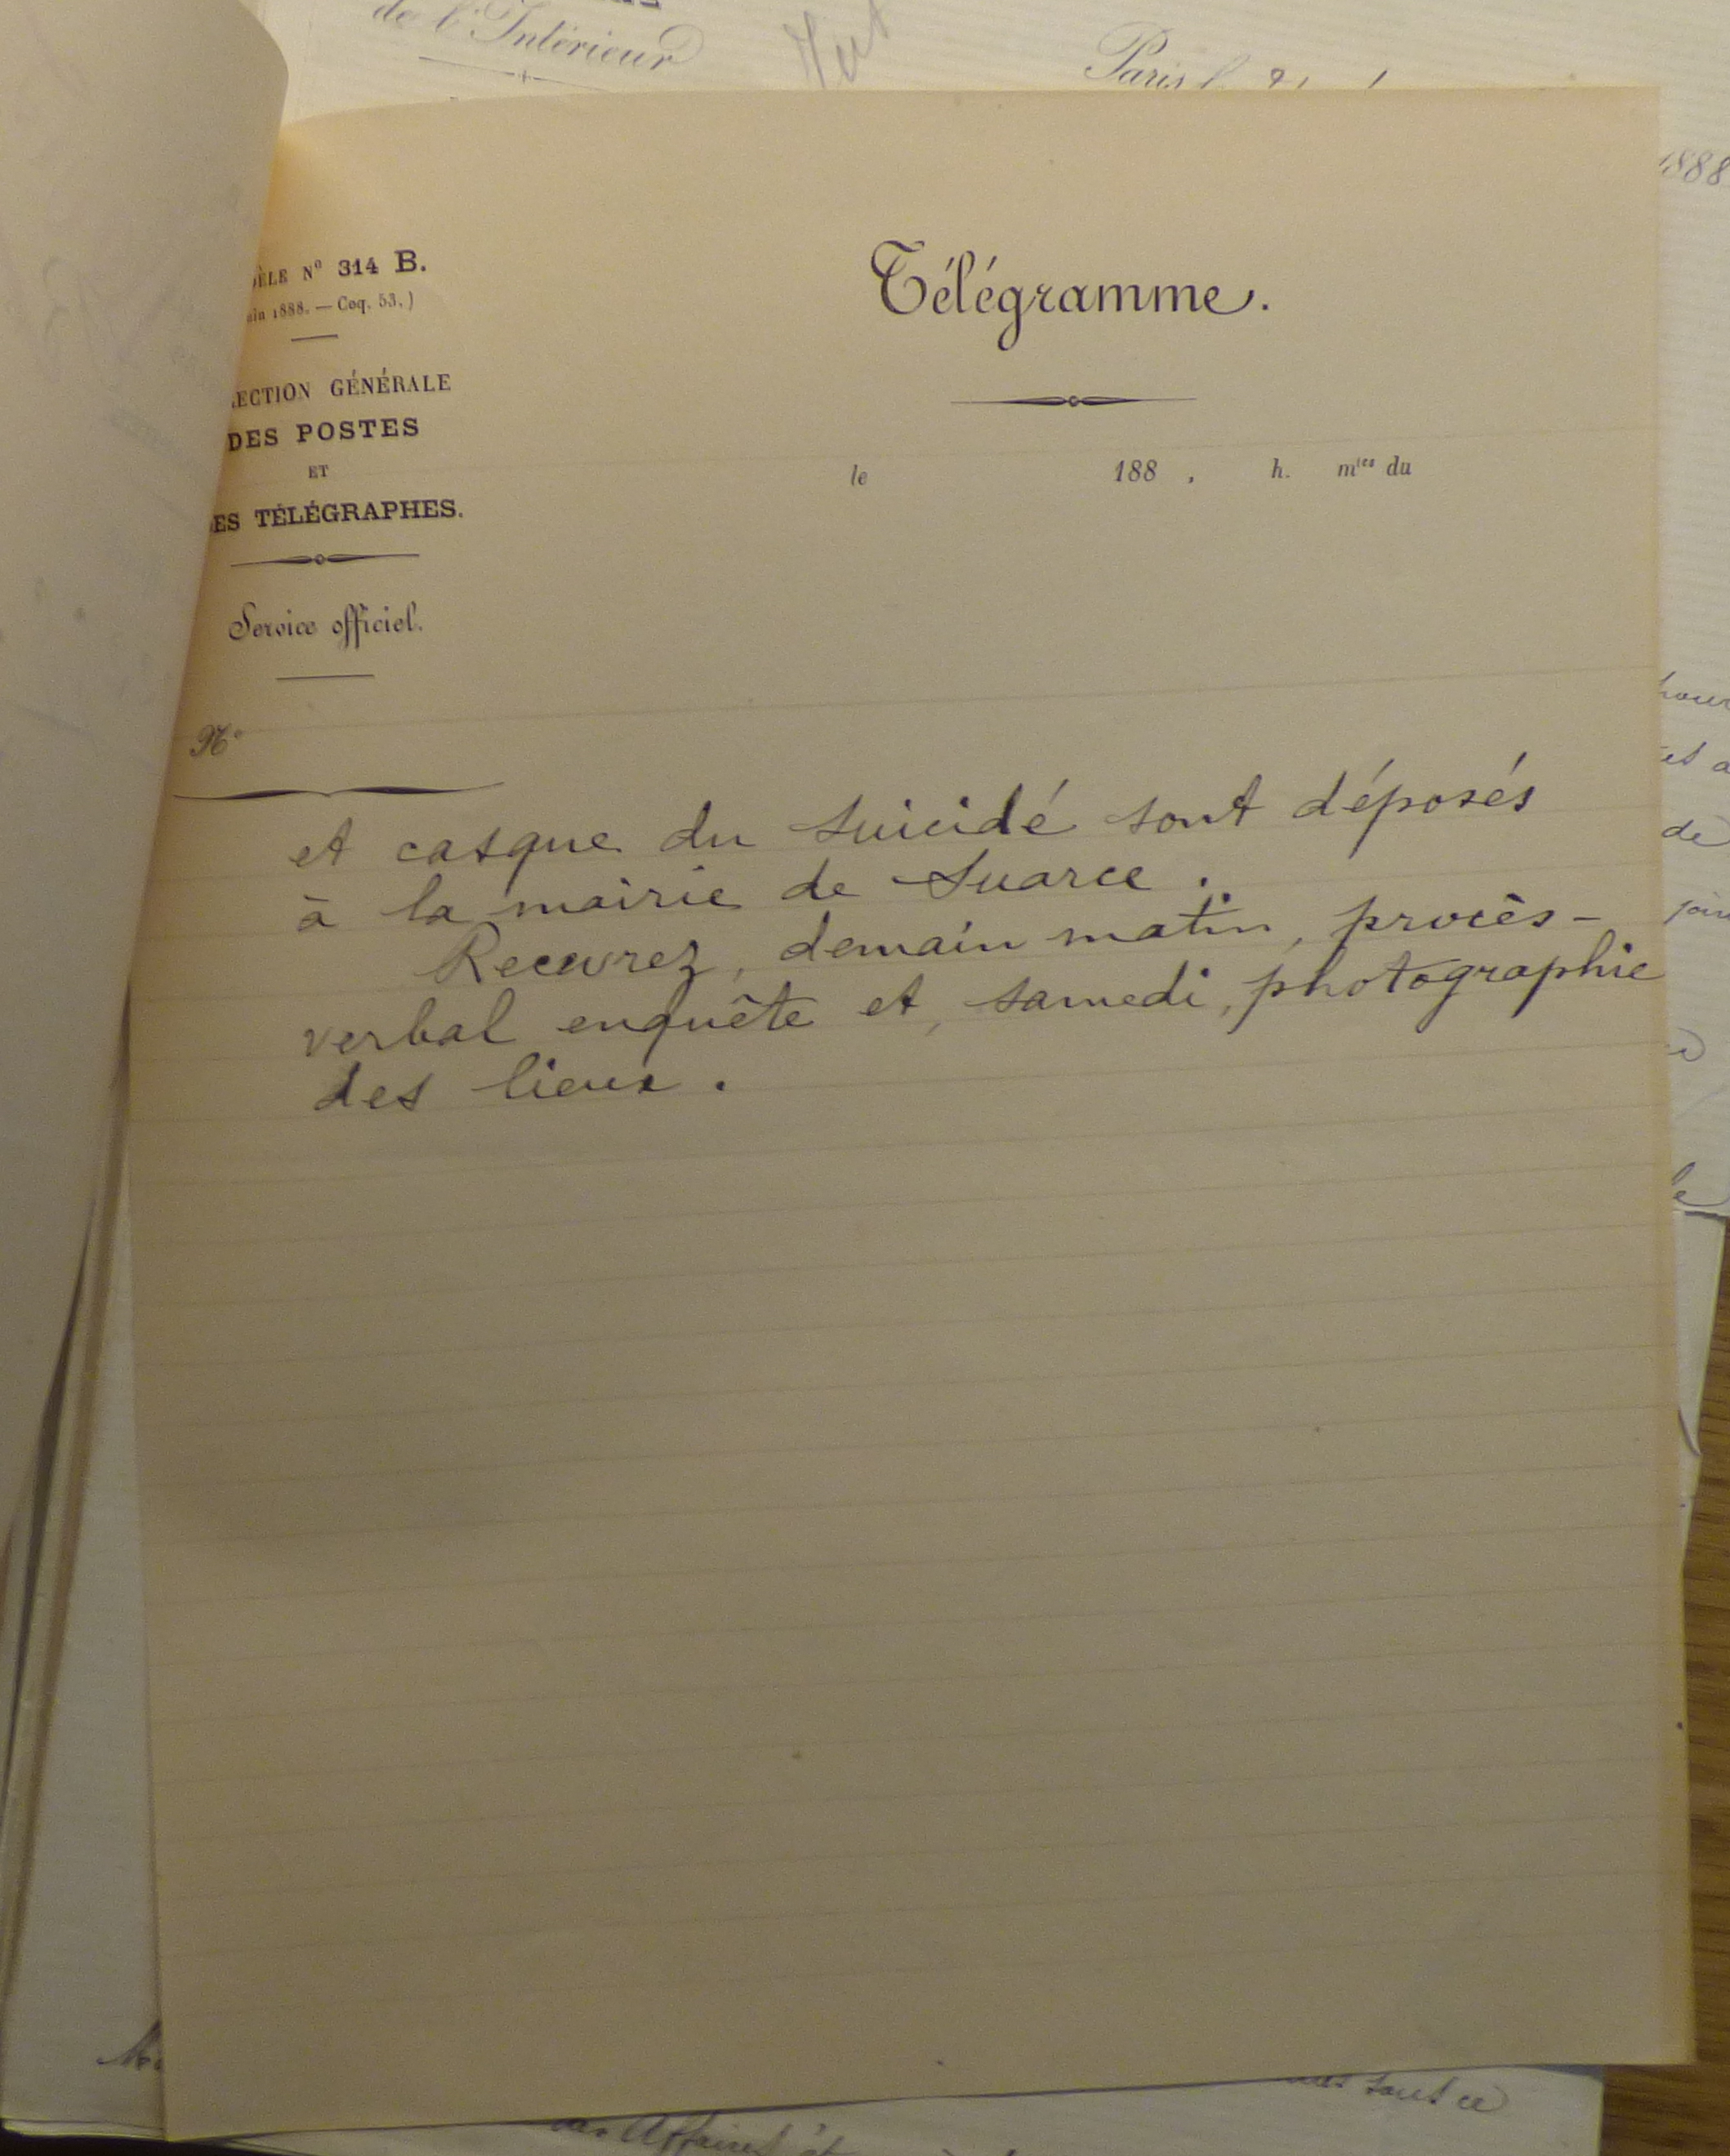 de l'Intérieur
Paris l
1888
ÈLE Nº 314 B.
in 1888. — Coq. 53.)
ECTION GÉNÉRALE
DES POSTES
ET
ES TÉLÉGRAPHES.
Service officiel.
Nº
Télégramme.
le 188 , h. mtes du
et casque du suicidé sont déposés
à la mairie de Suarce.
Recevrez, demain matin, procès-
verbal enquête et, samedi, photographie
des lieux.
de
Affaires ét
tout ce